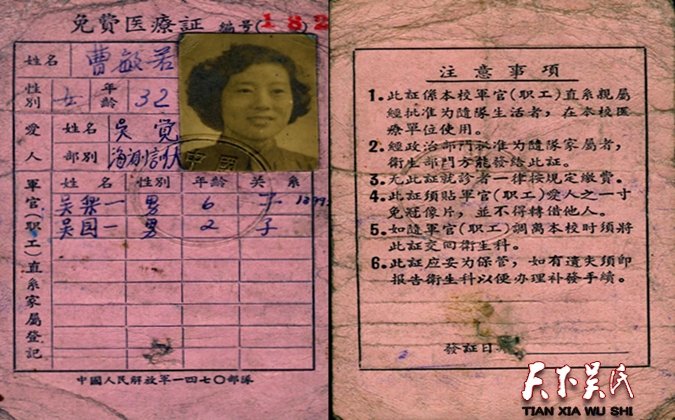 免費医療証 编号(182)
姓名 曹敏若
性别 女 年龄 32
爱人 姓名 吴觉
部别
軍官(职工)直系家屬登记
姓名 性别 年龄 关系
吴 一 男 6 子
吴国一 男 2 子
中國人民解放军一四七〇部隊
中國
注意事項
1. 此証係本校軍官(职工)直系親屬
經批准为随隊生活者，在本校医
療单位使用。
2. 經政治部門批准为随隊家屬者，
衛生部門方能發给此証。
3. 无此証就診者一律按規定缴費。
4. 此証须貼軍官(职工)爱人之一寸
免冠像片，並不得轉借他人。
5. 如随軍官(职工)調离本校时须將
此証交囬衛生科。
6. 此証应妥为保管，如有遺失须即
报告衛生科以便办理补發手續。
發証日
天下吴氏
TIAN XIA WU SHI